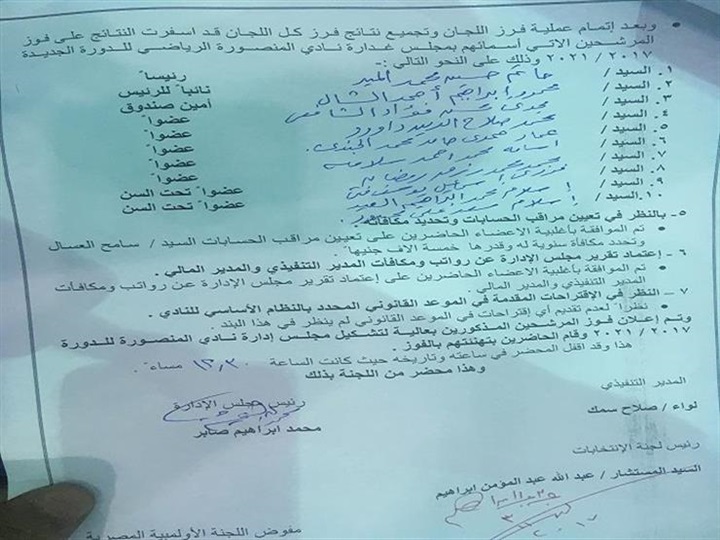 • وبعد إتمام عملية فرز اللجان وتجميع نتائج فرز كل اللجان قد اسفرت النتائج على فوز
المرشحين الاتي أسمائهم بمجلس غدارة نادي المنصورة الرياضي للدورة الجديدة
٢٠١٧ / ٢٠٢١ وذلك على النحو التالي :-
١. السيد / حاتم حسين محمد السيد رئيساً
٢. السيد / محمود ابراهيم أحمد الشال نائباً للرئيس
٣. السيد / مجدى فؤاد الشافعى أمين صندوق
٤. السيد / محمد صلاح الدين داوود عضواً
٥. السيد / عمار حمدى حامد محمد الجندى. عضواً
٦. السيد / اسامه محمد احمد سلامه عضواً
٧. السيد / محمد رمضان عضواً
٨. السيد / عضواً
٩. السيد / اسلام محمد ابراهيم السيد عضواً تحت السن
١٠. السيد / اسلام عضواً تحت السن
٥- بالنظر في تعيين مراقب الحسابات وتحديد مكافأته .
• تم الموافقة بأغلبية الاعضاء الحاضرين على تعيين مراقب الحسابات السيد / سامح العسال
وتحدد مكافأة سنوية له وقدرها خمسة الاف جنيها .
٦- إعتماد تقرير مجلس الإدارة عن رواتب ومكافآت المدير التنفيذي والمدير المالي .
• تم الموافقة بأغلبية الاعضاء الحاضرين على إعتماد تقرير مجلس الإدارة عن رواتب ومكافآت
المدير التنفيذي والمدير المالي .
٧ - النظر في الإقتراحات المقدمة في الموعد القانوني المحدد بالنظام الأساسي للنادي .
• نظراً لعدم تقديم أي إقتراحات في الموعد القانوني لم ينظر في هذا البند .
وتم إعلان فوز المرشحين المذكورين بعالية لتشكيل مجلس إدارة نادي المنصورة للدورة
٢٠١٧ / ٢٠٢١ وقام الحاضرين بتهنئتهم بالفوز .
هذا وقد اقفل المحضر في ساعته وتاريخه حيث كانت الساعة ١٢,٣٠ مساءً .
وهذا محضر من اللجنة بذلك
المدير التنفيذي
لواء / صلاح سمك
رئيس مجلس الإدارة
محمد ابراهيم صابر
رئيس لجنة الإنتخابات
السيد المستشار / عبد الله عبد المؤمن ابراهيم
٢٠١٧
مفوض اللجنة الأولمبية المصرية